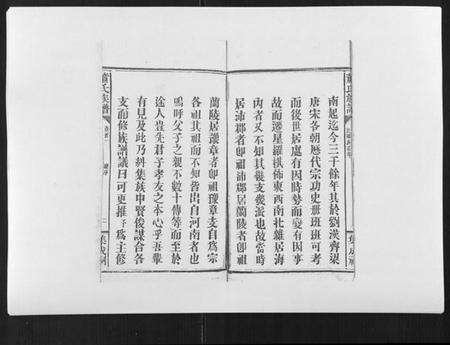 南起迄今三千餘年其於劉漢齊梁
唐宋各朝歷代宗功史冊班班可考
而後世居處有因時勢而變有因事
故而遷星羅棋佈東西南北雖居海
內者又不知其幾支幾派也故當時
居沛郡者卽祖沛郡居蘭陵者卽祖
蘭陵居豫章者卽祖豫章支自為宗
各祖其祖而不知皆出自河南者也
嗚呼父子之親不數十傳等而至於
途人豈生君子孝友之本心乎吾輩
有見及此乃糾集族中賢俊謀合各
支而修族譜議曰可更推
為主修
族譜